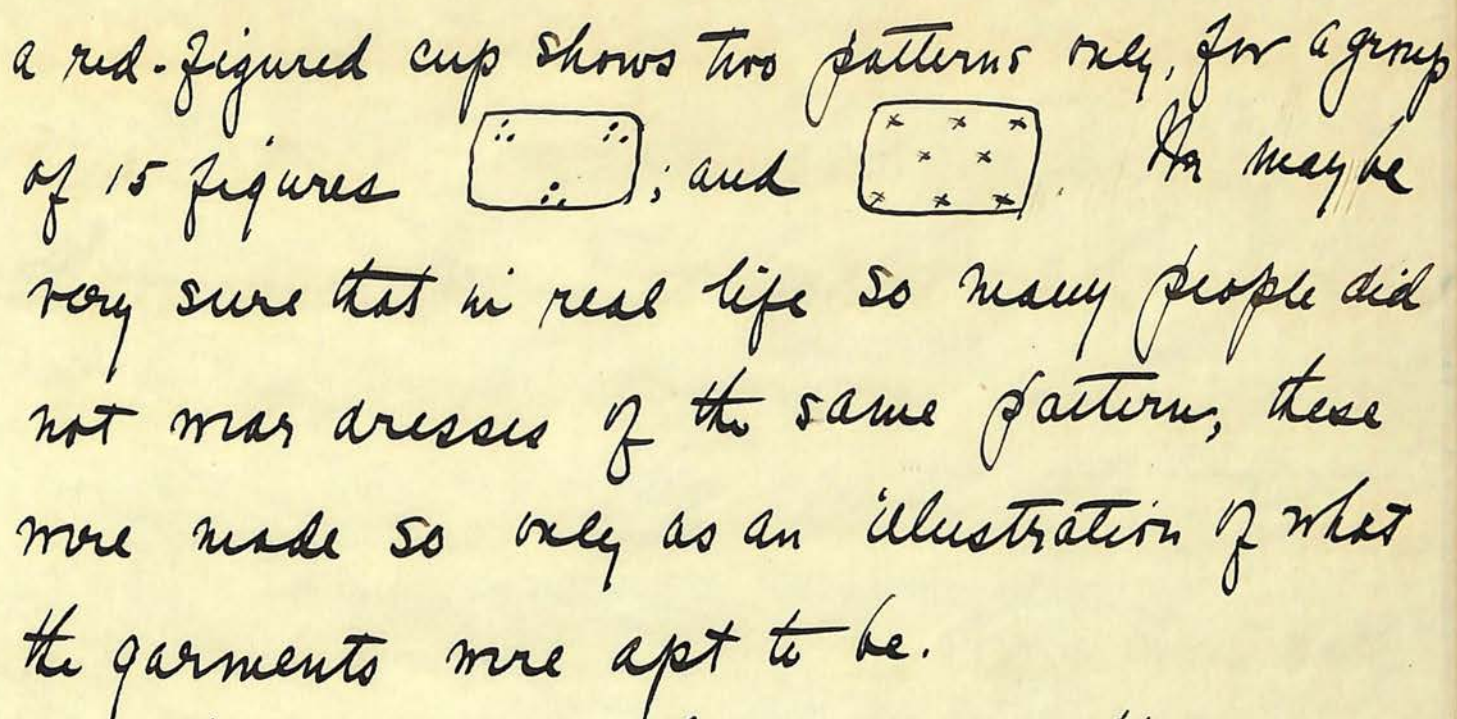 a red-figured cup shows two patterns only, for a group
of 15 figures ; and . We may be
very sure that in real life so many people did
not wear dresses of the same pattern, these
were made so only as an illustration of what
the garments were apt to be.